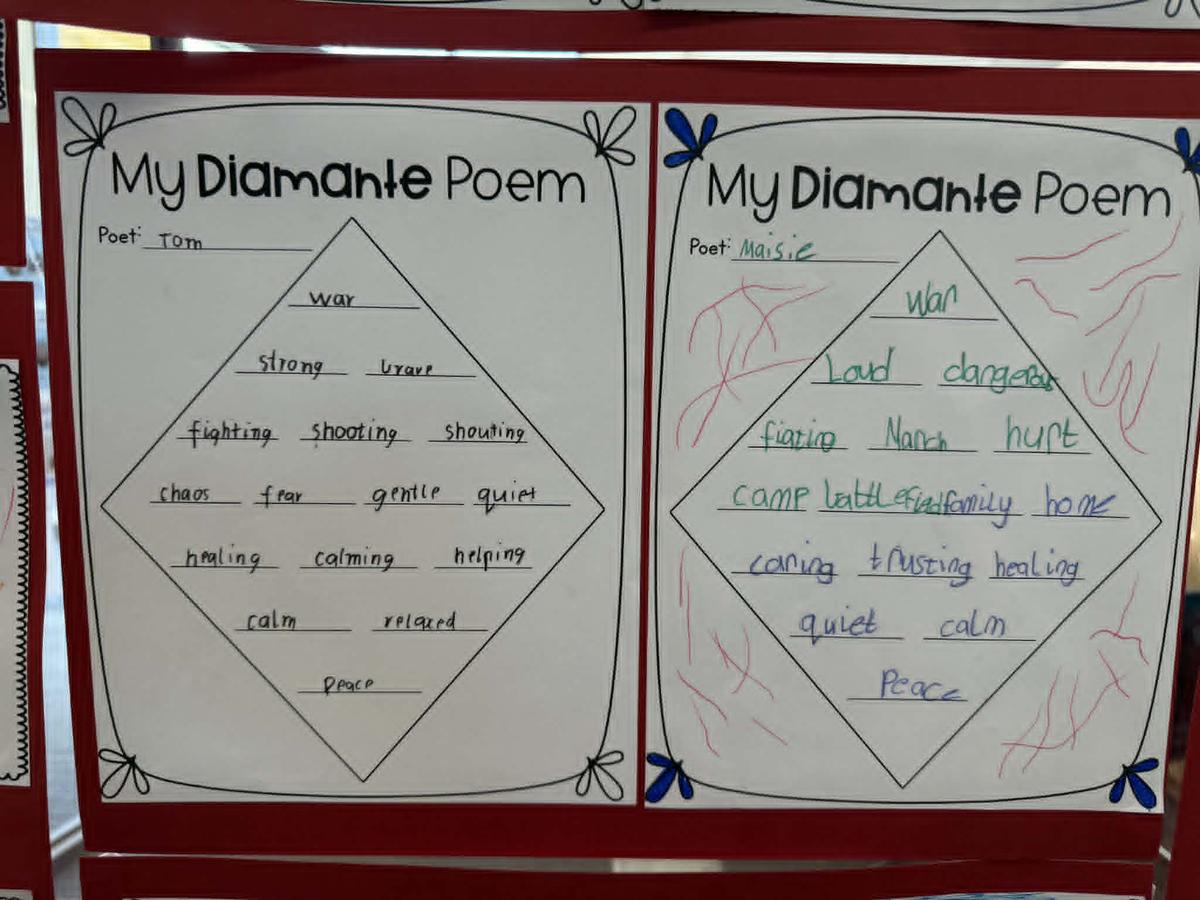 My Diamante Poem
Poet: Tom
war
strong brave
fighting shooting shouting
chaos fear gentle quiet
healing calming helping
calm relaxed
Peace
My Diamante Poem
Poet: Maisie
War
Loud dangerous
hurt
camp family home
caring trusting healing
quiet calm
Peace